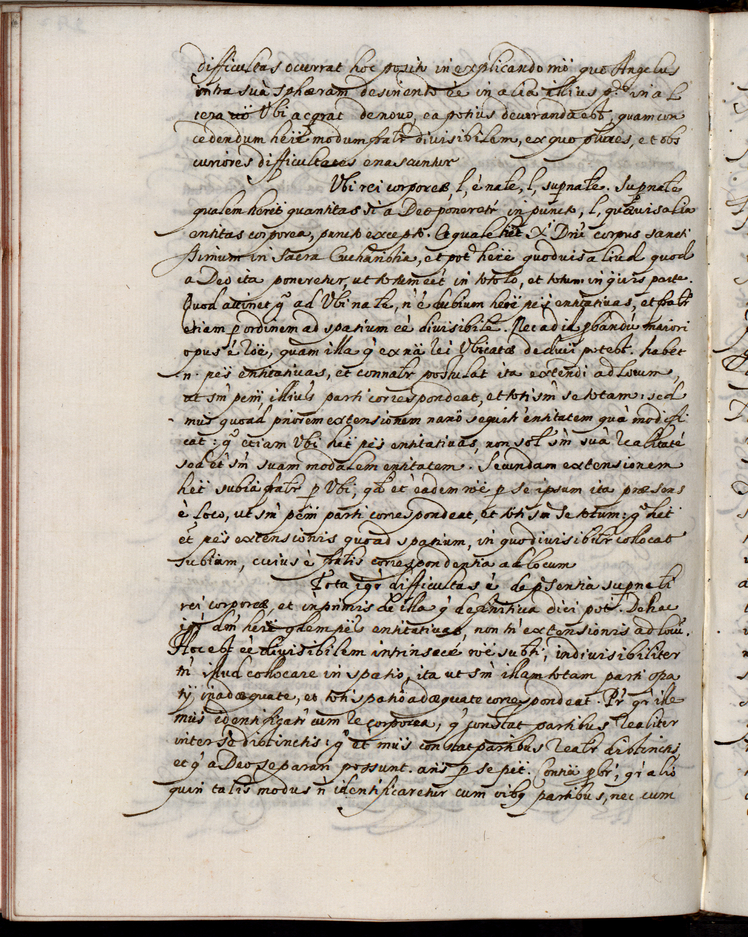 difficultas ocurrat hoc posito in explicando mõ quo Angelus
intra suã sphæram desinente ẽe in alia illius p.e in al
tera uõ Ubi acqrat de novo, ea potius devoranda ebt, quam con
cedendum herẽ modum divisibilem, ex quo plures, et obs
curiores difficultates enascuntur
Ubi rei corporeæ l, ẽ nale, l, supnale. Supnale
qualem heret quantitas si a Deo poneretr in puncto, l, quævis alia
entitas corporea, puncto excepto. Et quale het X.s Dñi corpus sancti
ssimum in Sacra Eucharistia, et pot herẽ quodvis aliud quod
a Deo ita poneretur, ut totum eet in toto lo, et totum in qvis parte.
Quod attinet g.o ad Ubi nale, ñ ẽ dubium herẽ pẽs entitativas, et
etiam p ordinem ad spatium ẽe divisibile. Nec ad id pbandũ maiori
opus ẽ rõe, quam illa q ex nã rei Ubicatæ deduci potest. habet
n. pẽs entitativas, et connatr postulat ita extendi ad locum,
ut sm pẽm illius parti correspondeat, et toti sm se totam: sed
mus quoad priorem extensionem entitatem quã modifi
cat: g.o etiam Ubi het pẽs entitativas, non sol sm suã realitatẽ
sed et sm suam modalem entitatem. Secundam extensionem
het p Ubi, q.a et eadem p se ipsum ita præsens
ẽ loco, ut sm pẽm parti correspondeat, et toti sm se totum: g.o het
et pẽs extensionis quoad spatium, in quo divisibilr collocat
subtũm, cuius ẽ correspondentia ad locum
Tota igr difficultas ẽ de psentia supnali
rei corporeæ, et inprimis de illa q definitiva dici pot. De hac
herẽ qdem pẽs entitativas, non tñ extensionis ad locũ.
Hoc ebt ẽe divisibilem intrinsece subti, indivisibiliter
tñ illud collocare in spatio, ita ut sm illam totam parti spa
tij inadæquate, et toti spatio adæquate correspondeat. Pr q.i ille
mus identificatr cum re corporea, q constat partibus realiter
inter se distinctis: g.o et mus constat partibus realr distinctis,
et q a Deo separari possunt. ans p se pet. Contiã pbr, q.i alio
quin talis modus ñ identificaretur cum oibq partibus, nec cum